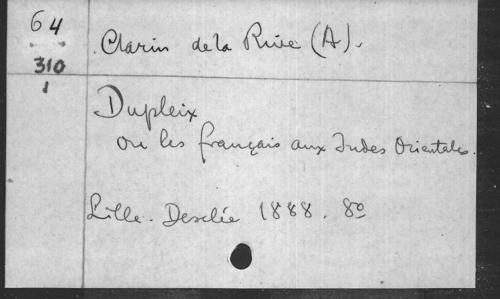 64
310
1
Clarin de la Rive (A).
Dupleix
ou les français aux Indes Orientales.
Lille. Desclée 1888. 8º